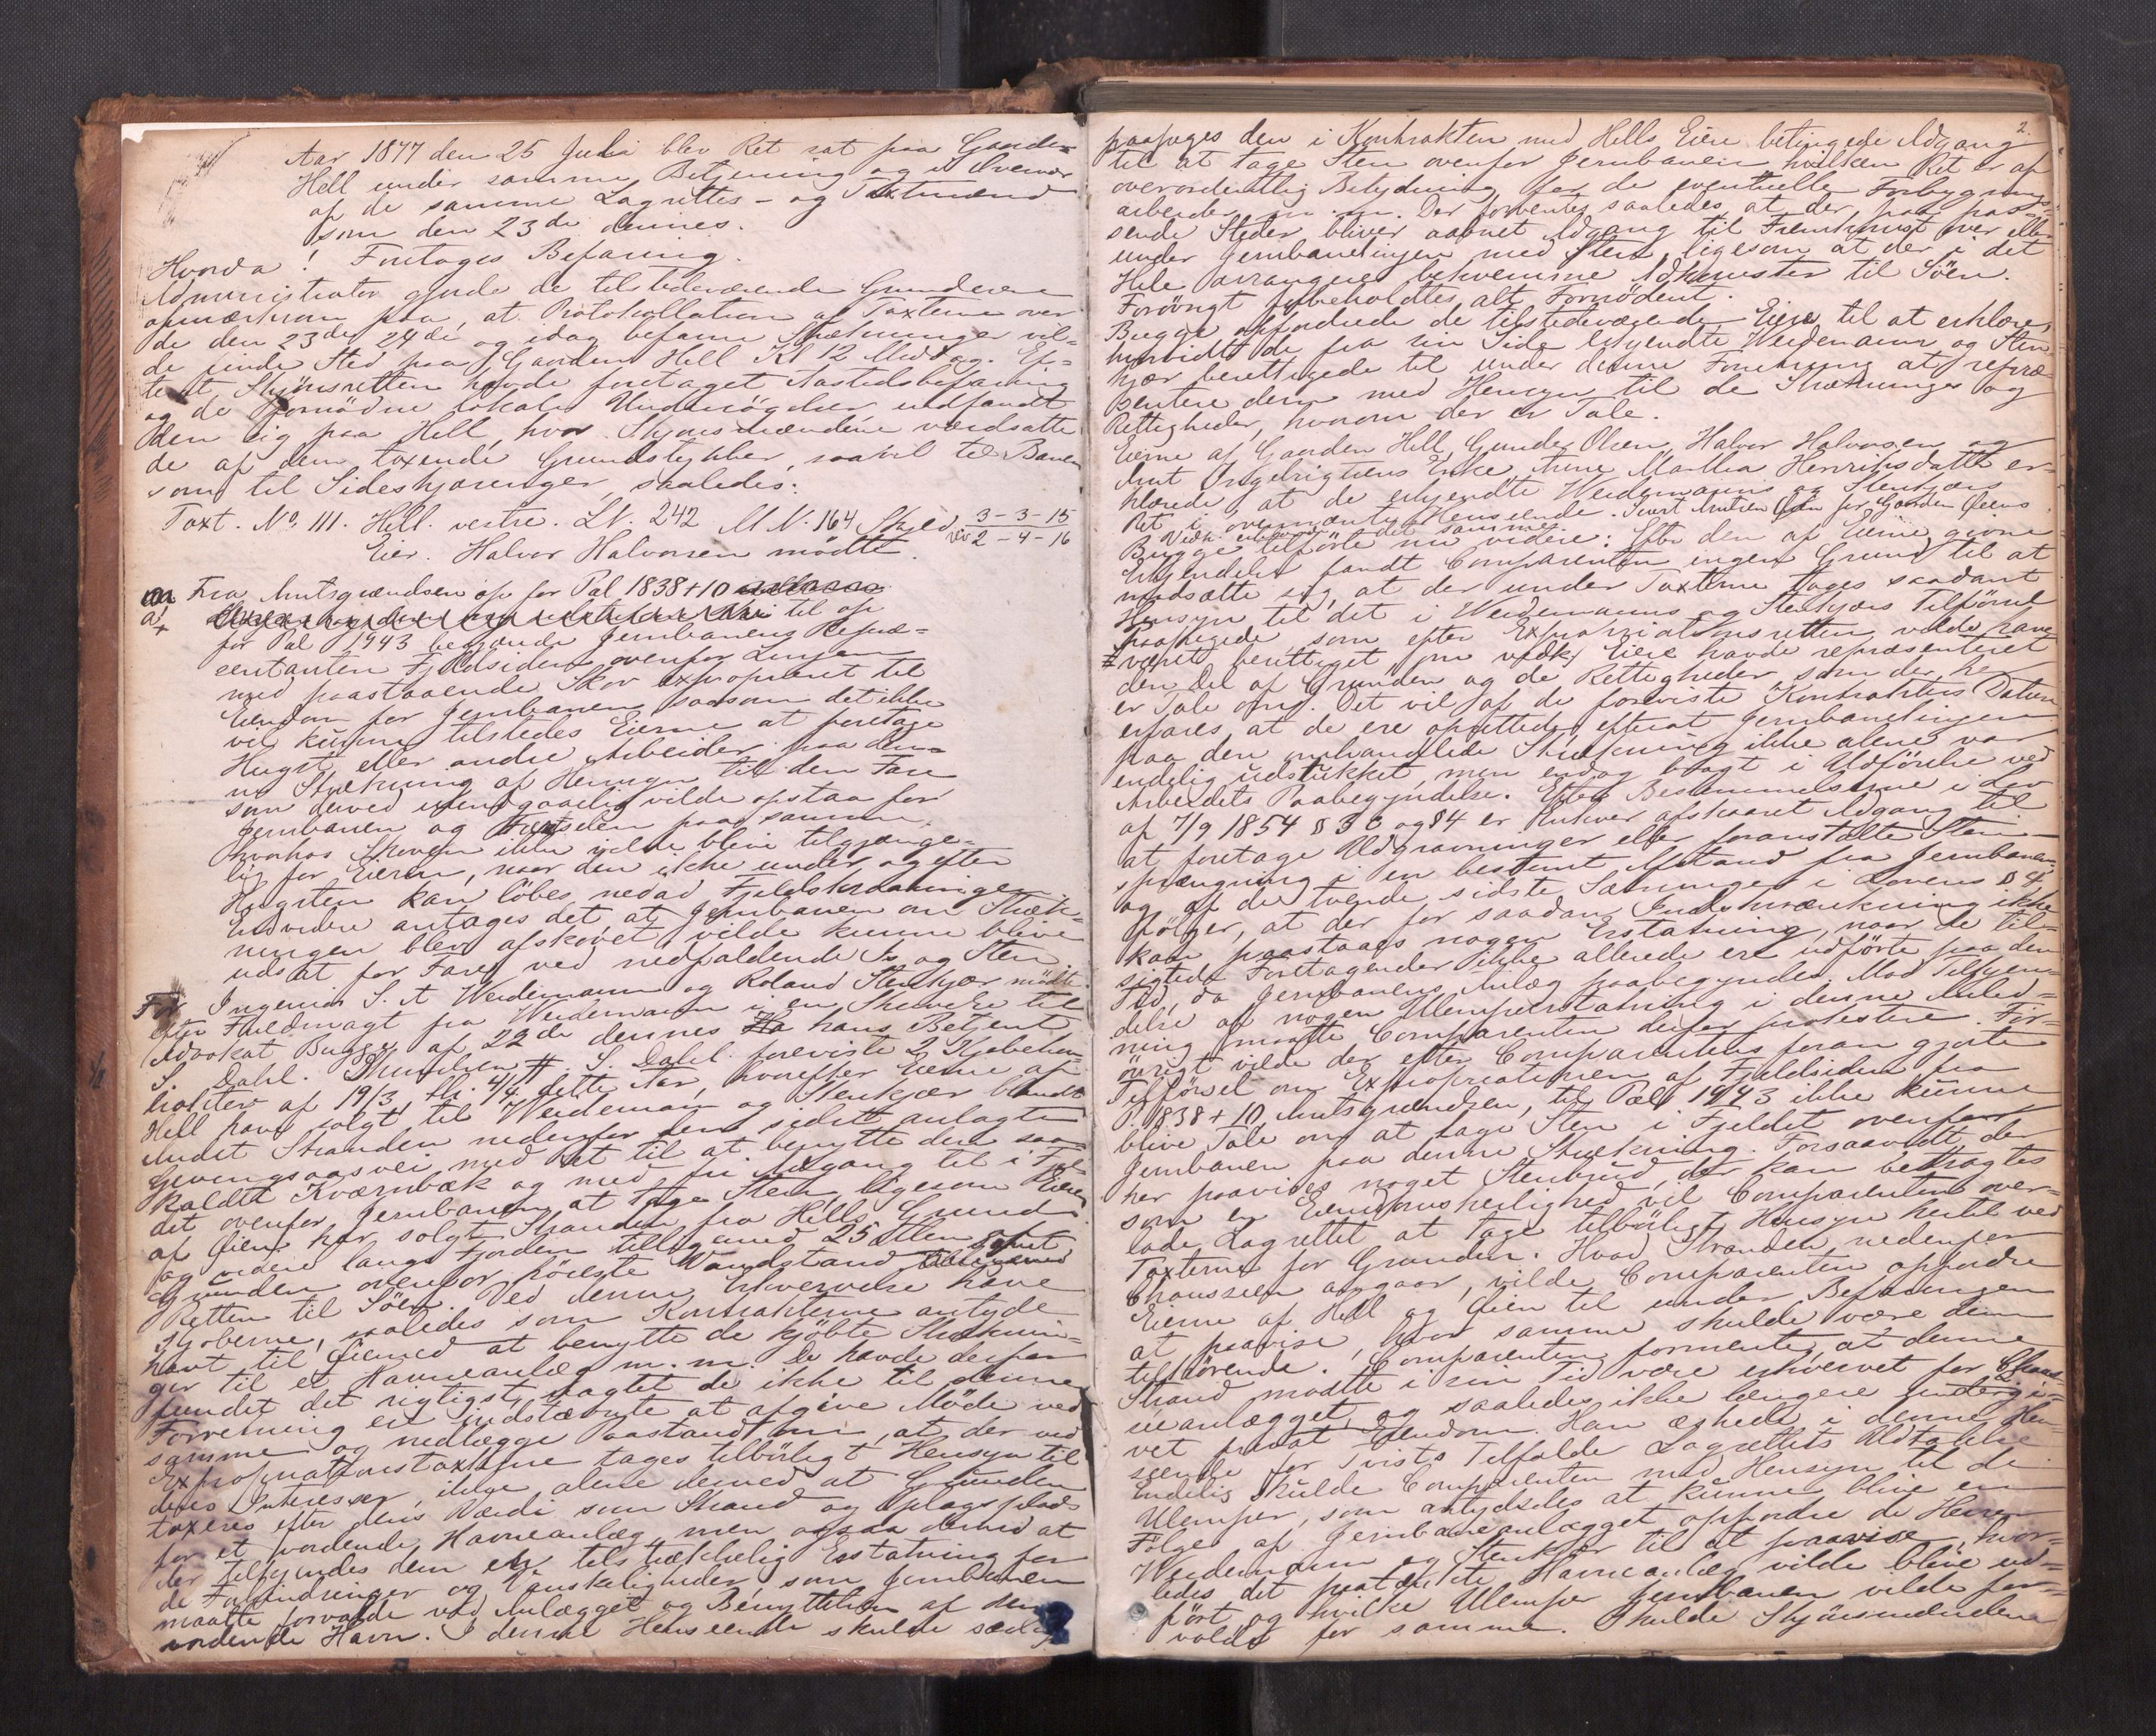 Aar 1877 den 25 Juli blev Ret sat paa Gaarden
Hell under samme Betjening og i Overvær
af de samme Lagrettes- og Taxtmænd
som den 23de dennes.
Hvorda! Foretoges Befaring.
Administrator gjorde de tilstedeværende Grundeiere
opmærksom paa, at Protokollation af Taxterne over
de den 23de 24de og idag befarne Strækninger vil-
de finde Sted paa Gaarden Hell Kl 12 Middag. Ef-
terat Skjönsretten havde foretaget Aastedsbefaring
og de fornödne lokale Undersögelser indfandt
den sig paa Hell, hvor Skjönsmændene værdsatte
de af dem taxerede Grundstykker, saavel til Banen
som til Sideskjæringer, saaledes:
Taxt. No. 111. Hell vestre. LN. 242 MN. 164 Skyld 3-3-15
rev 2-4-16
Eier. Halvor Halvorsen mødte.
a Fra Amtsgrændsen op for Pæl 1838+10
til op
for Pæl 1943 begjærede Jernbanens Repræ-
sentanten Fjeldsiden ovenfor Linjen
med paastaaende Skov exproprieret til
Eiendom for Jernbanen saasom det ikke
vil kunne tilstedes Eierne at foretage
Hugst eller andre Arbeider paa den-
ne Strækning af Hensyn til den Fare
som derved uundgaaelig vilde opstaa for
Jernbanen og Færdselen paa samme,
hvorhos Skoven ikke vilde blive tilgjænge-
lig for Eieren, naar den ikke under og efter
Hugsten kan löbes nedad Fjeldskraaningen.
Endvidere antages det, at Jernbanen om Stræk-
ningen blev afskovet, vilde kunne blive
udsat for Fare ved nedfaldende Is og Sten.
For Ingeniör S. A Weidemann og Roland Stenkjær mödte
efter Fuldmagt fra Weidemann i en Skrivelse til
Advokat Bugge af 22de dennes hans Betjent
S. Dahl. S. Dahl foreviste 2 Kjøbekon-
trakter af 19/3 4/4 dette Aar, hvorefter Eierne af
Hell have solgt til Weidemann og Stenkjær blandt
Andet Stranden nedenfor den sidst anlagte
Gevingsaasvei med Ret til at benytte den saa-
kaldte Kværnbæk og med fri Adgang til i Fjel-
det ovenfor Jernbanen at tage Sten, ligesom Eieren
af Öien har solgt Stranden fra Hells Grund
og videre langs Fjorden tilligemed 25 Alen af
Grunden ovenfor höieste Vandstand samt
Retten til Söen. Ved denne Erhvervelse have
Kjøberne, saaledes som Kontrakterne antyde
havt til Öiemed at benytte de kjöbte Stræknin-
ger til et Havneanlæg m. m. De havde derfor
fundet det rigtigst, uagtet de ikke til denne
Forretning ere indstævnte at afgive Möde ved
samme og nedlægge Paastand om, at der ved
Expropriationstaxterne tages tilbörligt Hensyn til
deres Interesser, ikke alene derved at Grunden
taxeres efter dens Værdi som Strand og Oplagsplads
for et vordende Havneanlæg, men ogsaa derved at
der tilkjendes dem en tilstrækkelig Erstatning for
de Forhindringer og Vanskeligheder, som Jernbanen
maatte forvolde ved Anlægget og Benyttelsen af den
vordende Havn. I denne Henseende skulde særlig
2.
paapeges den i Kontrakten med Hells Eiere betingede Adgang
til at tage Sten ovenfor Jernbanen hvilken Ret er af
overordentlig Betydning for de eventuelle Forbygnings-
arbeider m. m. Der forventes saaledes at der paa pas-
sende Steder bliver aabnet Adgang til Fremkomst over eller
under Jernbanelinjen med Sten, ligesom at der i det
Hele arrangeres bekvemme Adkomster til Söen.
Forövrigt forbeholdtes alt Fornödent.
Bugge opfordrede de tilstedeværende Eiere til at erklære,
hvorvidt de fra sin Side erkjendte Weidemann og Sten-
kjær berettigede til under denne Forretning at repræ-
sentere dem med Hensyn til de Strækninger og
Rettigheder, hvorom der er Tale.
Eierne af Gaarden Hell, Gunder Olsen, Halvor Halvorsen og
Arnt Ingebrigtsens Enke Anne Martha Henriksdatter er-
klærede, at de erkjendte Weidemanns og Stenkjærs
Ret i ovennævnte Henseende. Sivert Andreas Öien for Gaarden Öiens
Vedk. erklærede det samme.
Bugge tilförte nu videre: Efter den af Eierne givne
Erkjendelse fandt Comparenten ingen Grund til at
modsætte sig, at der under Taxterne tages saadant
Hensyn til det i Weidemanns og Stenkjærs Tilförsel
Paapegede, som efter Expropriationsretten vilde have
været berettiget, om vedk. Eiere havde repræsenteret
den Del af Grunden og de Rettigheder, som der her
er Tale om. Det vil af de foreviste Kontrakters Datum
erfares, at de ere oprettede efterat Jernbanelinjen
paa den omhandlede Strækning ikke alene var
endelig udstukket, men endog bragt i Udförelse ved
Arbeidets Paabegyndelse. Efter Bestemmelserne i Lov
af 7/9 1854 § 3 c og § 4 er Enhver afskaaret Adgang til
at foretage Udgravninger eller foranstalte Sten-
sprængning i en bestemt Afstand fra Jernbanen
og af de tvende sidste Sætninger i Lovens § 4
fölger, at der for saadan Indskrænkning ikke
kan paastaaes nogen Erstatning, naar de til-
sigtede Foretagender ikke allerede ere udförte paa den
Tid, da Jernbanens Anlæg paabegyndes. Mod Tilkjen-
delse af nogen Ulempeerstatning i denne Anled-
ning maatte Comparenten derfor protestere. For-
övrigt vilde der efter Comparentens foran gjorte
Tilförsel om Expropriationen af Fjeldsiden fra
P. 1838 + 10, Amtsgrændsen, til Pæl 1943 ikke kunne
blive Tale om at tage Sten i Fjeldet ovenfor
Jernbanen paa denne Strækning. Forsaavidt der
her paavises noget Stenbrud, der kan betragtes
som en Eiendomsherlighed vil Comparenten over-
lade Lagrettet at tage tilbörligt Hensyn hertil ved
Taxterne for Grunden. Hvad Stranden nedenfor
Chausseen angaar, vilde Comparenten opfordre
Eierne af Hell og Öien til under Befaringen
at paavise, hvor samme skulde være dem
tilhörende. Comparenten formente, at denne
Strand maatte i sin Tid være erhvervet for Chaus-
seanlægget og saaledes ikke længere undergi-
vet privat Eiendom. Han æskede i denne Hen-
seende for Tvists Tilfælde Lagrettets Udtalelse.
Endelig skulde Comparenten med Hensyn til de
Ulemper, som antydedes at kunne blive en
Fölge af Jernbaneanlægget opfordre de Herrer
Weidemann og Stenkjær til at paavise, hvor-
ledes det paatænkte Havneanlæg vilde blive ud-
fört og hvilke Ulemper Jernbanen vilde for-
volde for samme. Skulde Skjönsmændene